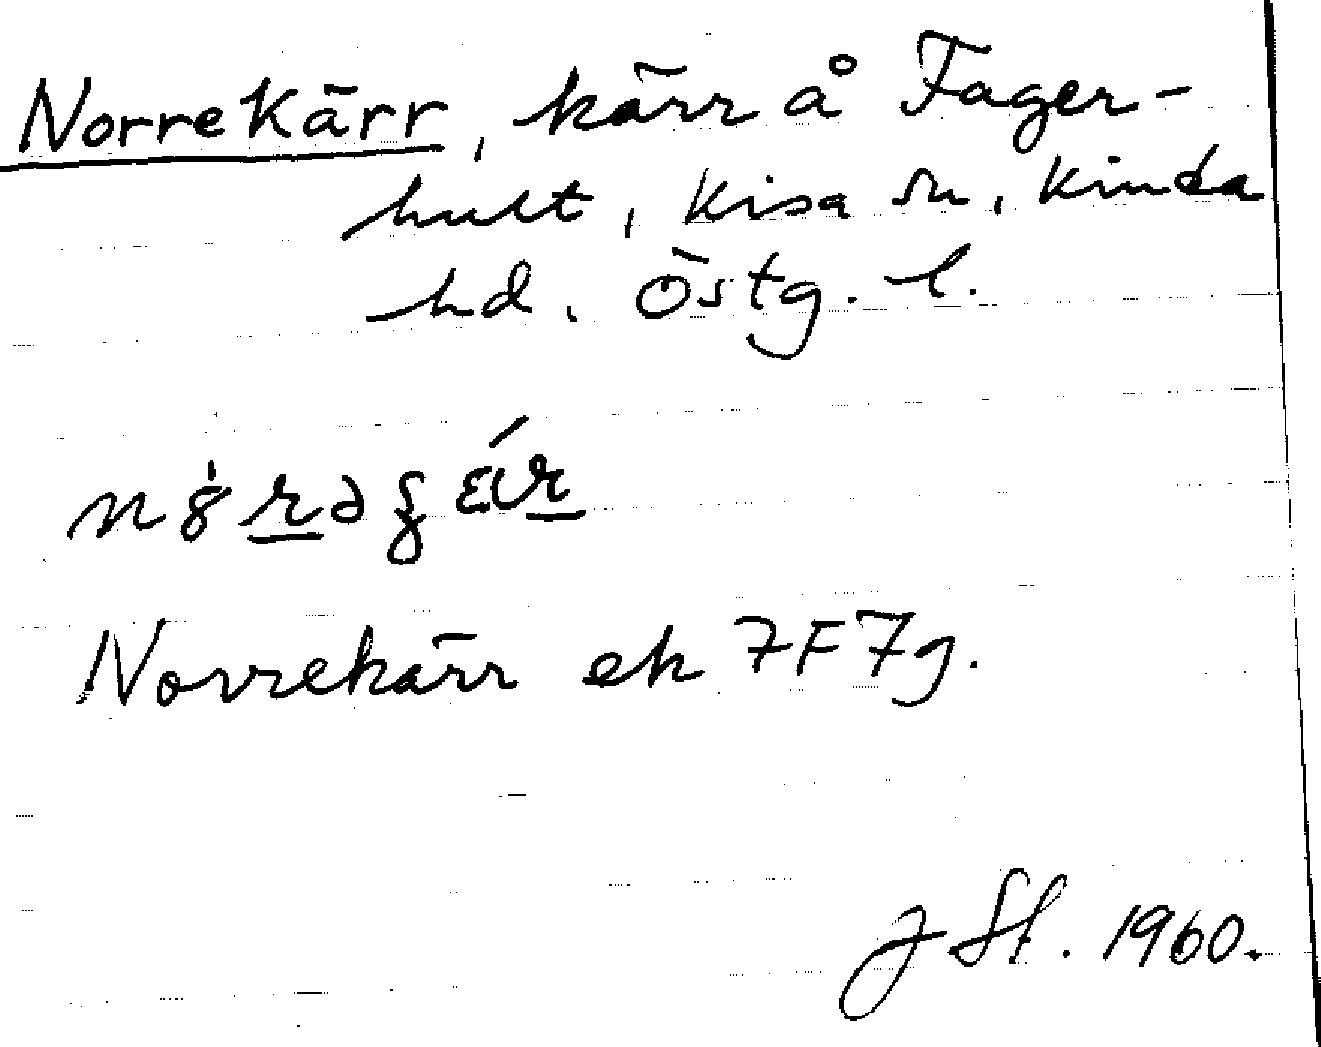 Norrekärr, kärr å Fager-
hult, Kisa sn, Kinda
hd. Östg. l.
Norrekärr ek 7F7g.
J St. 1960.